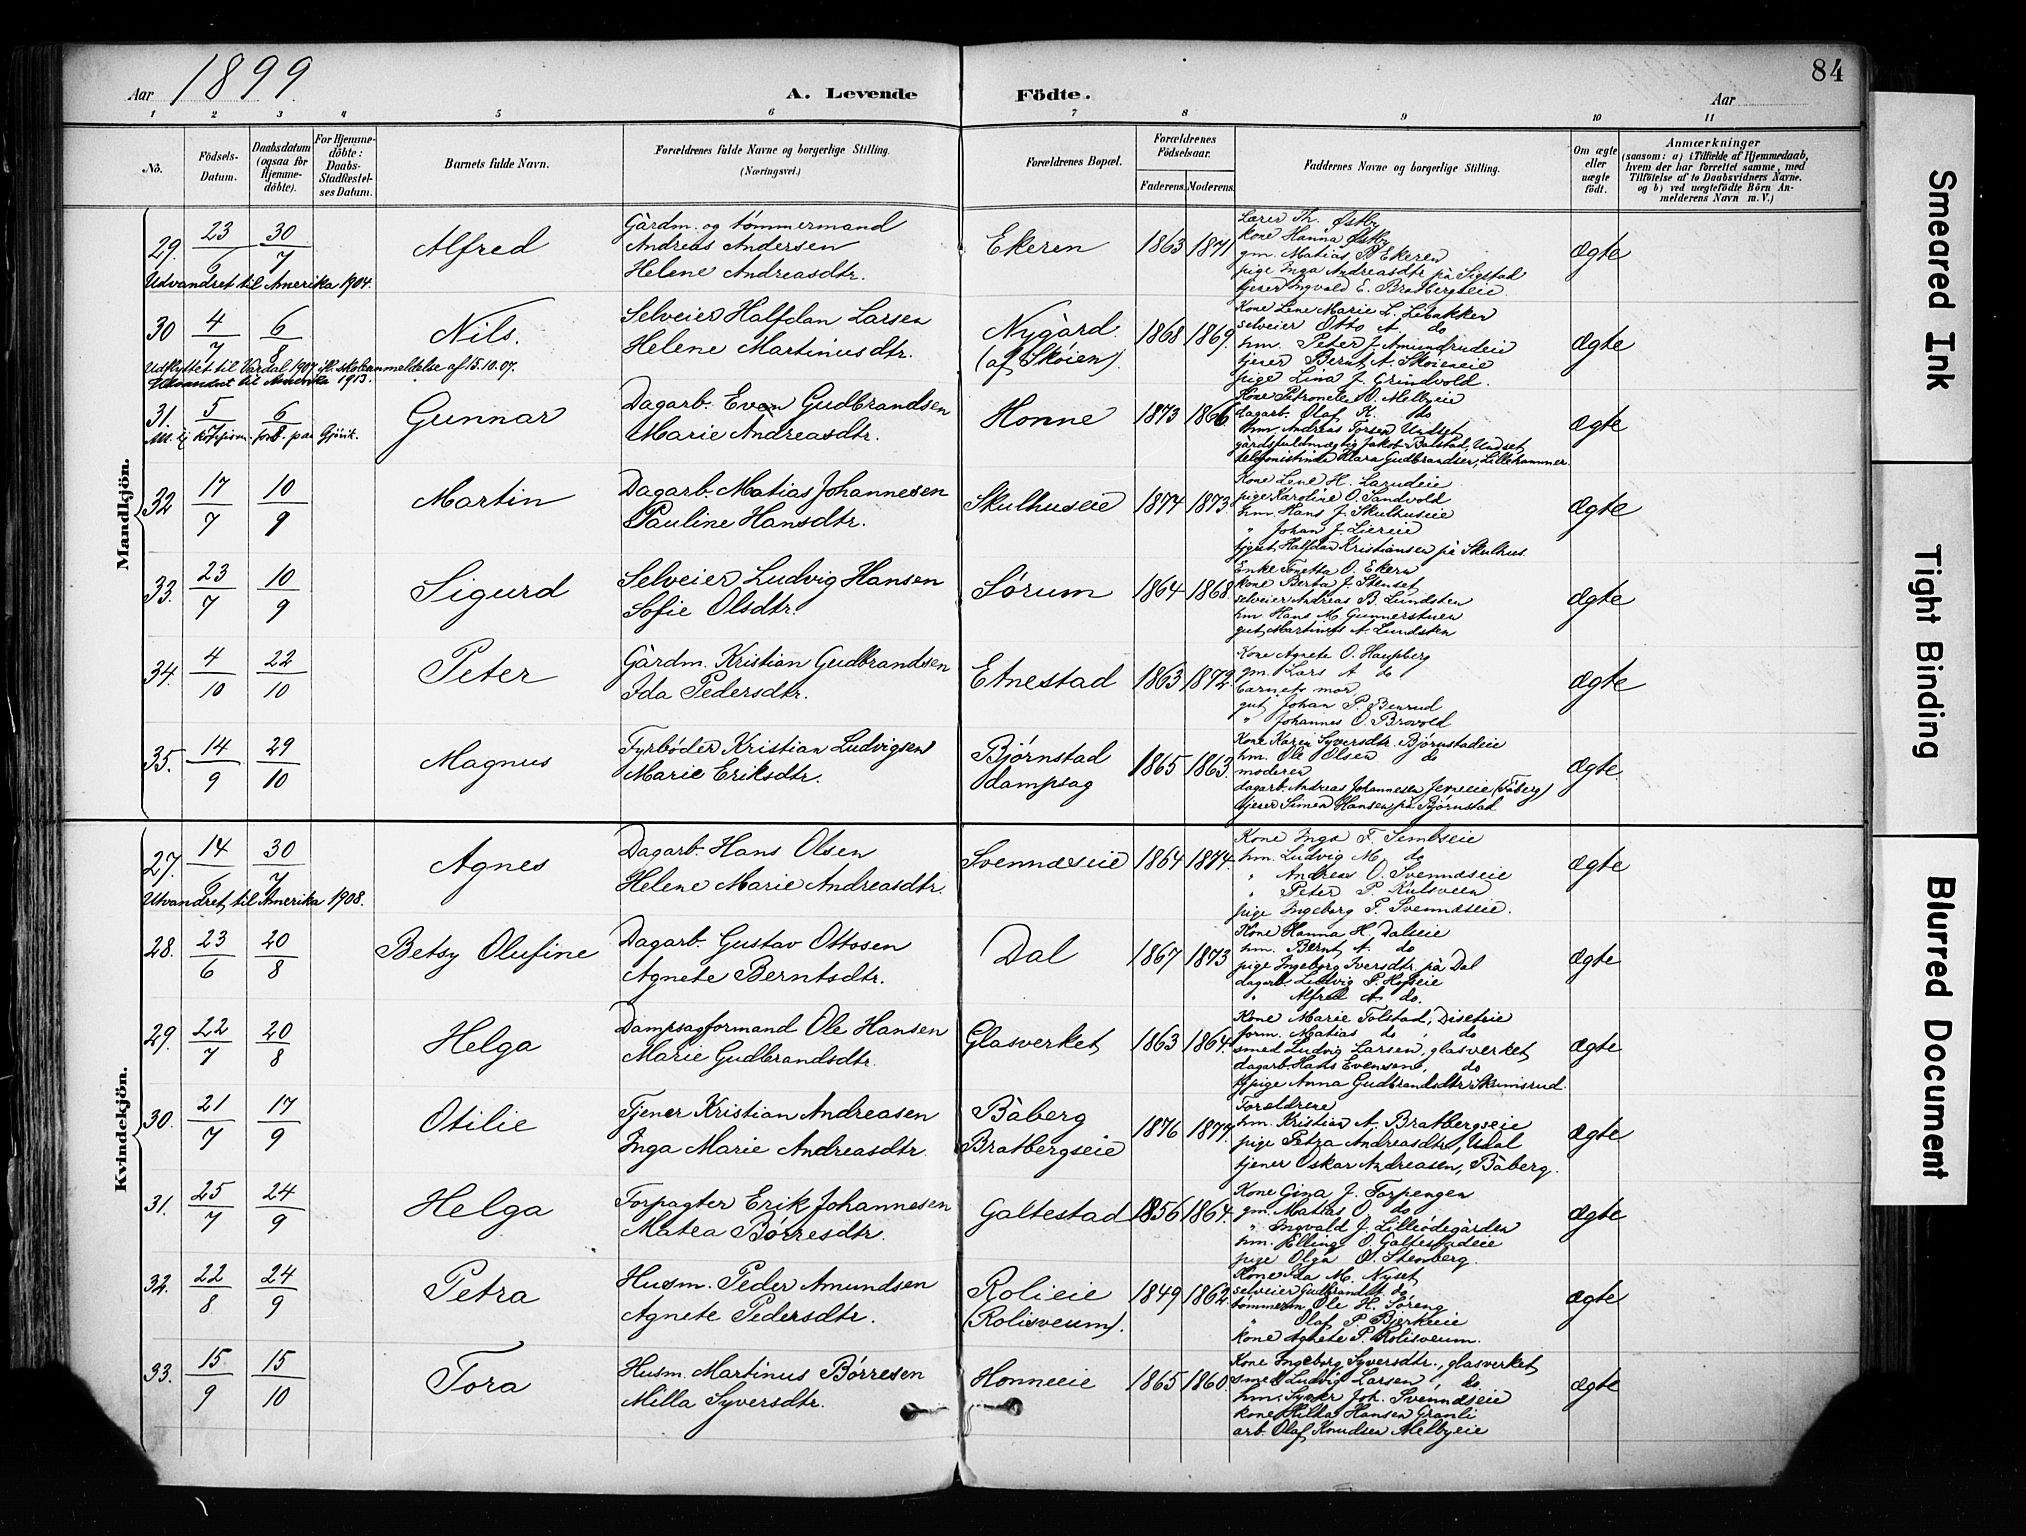 Aar 1899. A. Levende Födte. Aar 84
1 2 3 4 5 6 7 8 9 10 11
No. Födsels-Datum. Daabsdatum (ogsaa for Hjemmedöbte). For Hjemmedöbte: Daabs-Stadfæstelses Datum. Barnets fulde Navn. Forældrenes fulde Navne og borgerlige Stilling. (Næringsvei.) Forældrenes Bopæl. Forældrenes Födselsaar. Faderens. Moderens. Faddernes Navne og borgerlige Stilling. Om ægte eller uægte födt. Anmærkninger (saasom: a) i Tilfælde af Hjemmedaab, hvem der har forrettet samme, med Tilföielse af to Daabsvidners Navne. og b) ved uægtefödte Börn Anmelderens Navn m. V.)
Mandkjön.
29. 23/6 30/7 Alfred Gårdm. og tømmermand Andreas Andersen Helene Andreasdtr. Ekeren 1863 1871 Lærer Th. Østby
kone Hanna Østby
gm. Matias P. Ekeren
pige Inga Andreasdtr på Sigstad
tjener Ingvald E. Bratbergseie. Ægte
Udvandret til Amerika 1904.
30 4/7 6/8 Nils. Selveier Halfdan Larsen Helene Martinusdtr. Nygård. (af Skøien). 1868 1869. Kone Lene Marie L. Libakken
selveier Otto A. do
hm. Peter J. Amundrudeie
tjener Bernt A. Skøieneie
pige Lina J. Grindvold. Ægte
Udflyttet til Vardal 1907 if. skoleanmeldelse af 15.10.07.
Utvandret til Amerika 1913.
31. 5/7 6/8 Gunnar Dagarb. Even Gudbrandsen Marie Andreasdtr. Honne 1873 1866 Kone Petronelle O. Melbyeie
dagarb. Olaf K. do
hm. Andreas Torsen Undset
gårdsfuldmægtig Jakob Balstad, Undset,
telefonistinde Klara Gudbrandsen, Lillehammer. Ægte
32 17/7 10/9 Martin Dagarb. Matias Johannesen Pauline Hansdtr. Skulhuseie 1874 1873 Kone Lene H. Lazudeie
pige Karoline O. Sandvold
hm. Hans J. Skulhuseie
" Johan J. Liereie
tjgut Halfdan Kristiansen på Skulhus. Ægte
33. 23/7 10/9 Sigurd Selveier Ludvig Hansen Sofie Olsdtr. Sørum 1864 1868. Enke Tonetta O. Ekern
kone Berta J. Stenset
selveier Andreas B. Lundsten
hm Hans M. Gunnerstuen
gut Martinus A. Lundsten Ægte
34. 4/10 22/10 Peter Gårdm. Kristian Gudbrandsen Ida Pedersdtr. Etnestad 1863 1872. Kone Agnete O. Haugsberg
gm. Lars A do
barnets mor,
gut Johan P. Benrud
" Johannes O. Brovold Ægte
35. 14/9 29/10 Magnus Fyrbøder Kristian Ludvigsen Marie Eriksdtr. Bjørnstad dampsag 1865 1863. Kone Karen Syversdtr. Bjørnstadeie
hm. Ole Olsen do
moderen
dagarb. Andreas Johannesen Jeneeie (Fåberg)
tjener Simen Hansen på Bjørnstad Ægte.
Kvindekjön.
27. 14/6 30/7 Agnes Dagarb. Hans Olsen Helene Marie Andreasdtr. Svennæseie 1864 1874. Kone Inga F. Sembseie
hm. Ludvig M. do
" Andreas O. Svennæseie
" Peter P. Kulsveen
pige Ingeborg P. Svennæseie. Ægte
Utvandret til Amerika 1908.
28. 23/6 20/8 Betsy Olufine Dagarb. Gustav Ottosen Agnete Berntsdtr. Dal 1867 1873 Kone Hanna H. Dalseie
hm. Bernt A. do
pige Ingeborg Iversdtr. på Dal
dagarb. Ludvig P. Hofseie
" Alfred A. do. Ægte
29. 22/7 20/8 Helga Dampsagformand Ole Hansen Marie Gudbrandsdtr. Glasverket 1863 1864. Kone Marie Tolstad, Diseteie
form. Matias do do
smed Ludvig Larsen, glasverket
dagarb. Hans Evensen, do
tjpige Anna Gudbrandsdtr. Skumsrud. Ægte
30. 21/7 17/9 Otilie Tjener Kristian Andreasen Inga Marie Andreasdtr. Båberg Bratbergseie 1876 1877. Forældrene
hm. Kristian A. Bratbergseie
pige Petra Andreasdtr, Udal
tjener Oskar Andreasen, Båberg. Ægte
31. 25/7 24/9 Helga Forpagter Erik Johannesen Matea Børresdtr. Galtestad 1856 1864. Kone Gina J. Forpengen
gm. Matias O. do
" Ingvald J. Lilleødegården
hm. Elling O. Galtestadeie
pige Olga O. Stenberg. Ægte
32. 22/8 24/9 Petra Husm. Peder Amundsen Agnete Pedersdtr. Rolieie (Rolisveum). 1849 1862 Kone Ida M. Nyset
selveier Gulbrand A. do
tømmerm Ole H. Søreng
" Olaf P. Bjerkeeie
kone Agnete P. Rolisveum. Ægte
33. 15/9 15/10 Tora Husm. Martinus Børresen Milla Syversdtr. Honneeie 1865 1860. Kone Ingeborg Syversdtr., glasverket
smed Ludvig Larsen, do
hm. Syver Joh. Svennæseie
kone Hilda Hansen Granli
arb. Olaf Knudsen Melbyeie Ægte
Smeared Ink
Tight Binding
Blurred Document